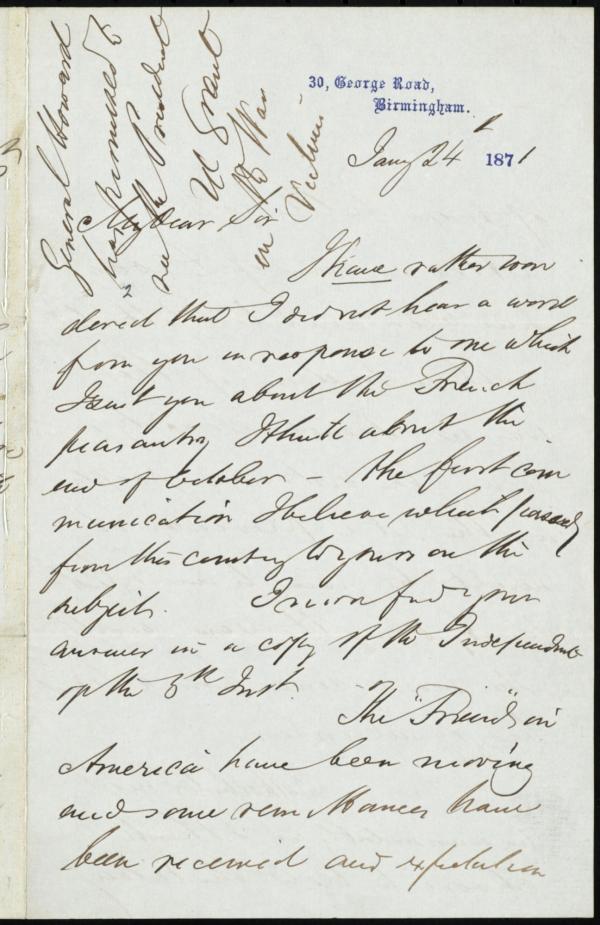 General Howard
has promised to
see the President
U Grant
on War
Victims
30, George Road,
Birmingham.
Jany 24 1871
My dear Sir
I have rather won
dered that I did not hear a word
from you in response to one which
I sent you about the French
peasantry I think about the
end of October - the first com
munication I believe which passed
from this country to yours on the
subject. I now find your
answer in a copy of the Independent
of the 5th Inst.
The "Friends" in
America have been moving
and some remittances have
been received and